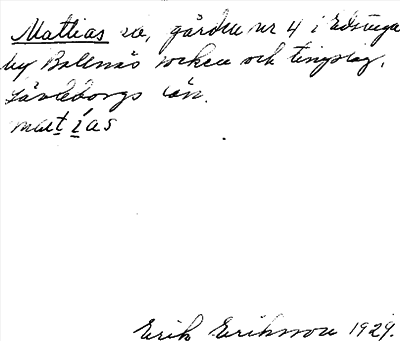 Mattias sn, gården nr 4 i Edstuga
by Bollnäs socken och tingslag,
Gävleborgs län.
mattías
Erik Eriksson 1929.